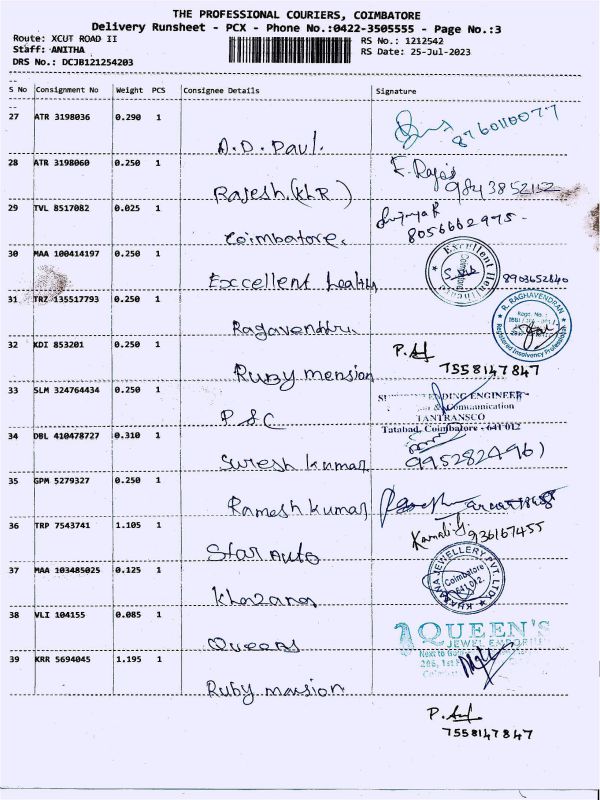 THE PROFESSIONAL COURIERS, COIMBATORE
Delivery Runsheet - PCX - Phone No.:0422-3505555 - Page No.:3
Route: XCUT ROAD II RS No.: 1212542
Staff: ANITHA RS Date: 25-Jul-2023
DRS No.: DCJB121254203
S No Consignment No Weight PCS Consignee Details Signature
27 ATR 3198036 0.290 1
A.D. Paul. 8760110077
28 ATR 3198060 0.250 1
Rajesh.(KLR) 9843852152
29 TVL 8517082 0.025 1
Coimbatore. 8056662975-
30 MAA 100414197 0.250 1
Exccellent health 8903652640
31 TRZ 135517793 0.250 1
Ragavendhru R. RAGHAVENDRAN Registered Insolvency Professional
32 KDI 853201 0.250 1
Ruby mension 7558147847
33 SLM 324764434 0.250 1
P S C ENDING ENGINEER
& Communication
TANTRANSCO
Tatabad, Coimbatore - 641 012
34 DBL 410478727 0.310 1
Suresh kumar 9952824961
35 GPM 5279327 0.250 1
Ramesh kumar
36 TRP 7543741 1.105 1
Star Auto 936167455
37 MAA 103485025 0.125 1
Khazana JEWELLERY PVT. LTD Coimbatore 641 012.
38 VLI 104155 0.085 1
Queens QUEEN'S
JEWEL EMPORIUM
Next to
206, 1st
39 KRR 5694045 1.195 1
Ruby mansion
7558147847